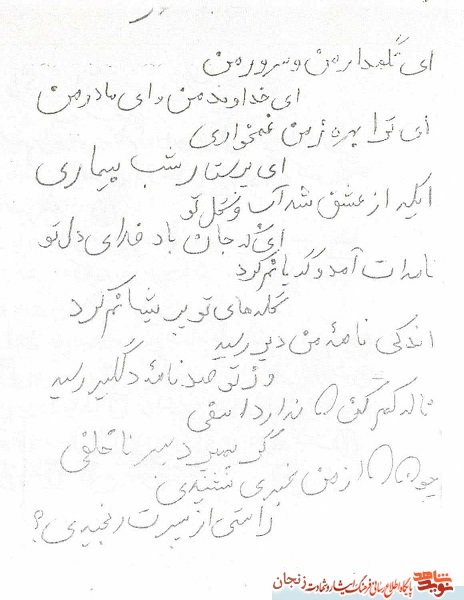 ای نگهدار من و سرور من
ای خداوند من و ای مادر من
ای ترا بهره ز من غمخواری
ای پرستار شب بیماری
ایکه از عشق شد آب و گل تو
ای که جان باد فدای دل تو
نامه ات آمد و گریانم کرد
گله های تو پریشانم کرد
اندکی نامه من دیر رسید
وز تو صد نامه دلگیر رسید
ناله کم کن ندارد اسفی
گر بمیرد پسر ناخلفی
چون از من خبری نشنیدی
راستی از پسرت رنجیدی؟
نوید شاهد پایگاه اطلاع رسانی فرهنگ ایثار و شهادت زنجان